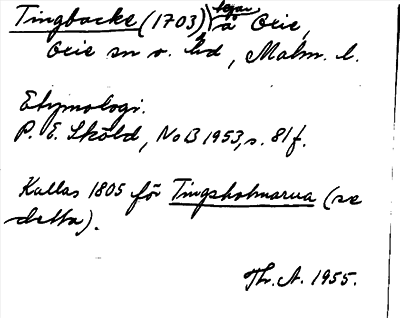 Tingbacke (1703), å Oxie,
Oxie sn o. hd, Malm. l.
Etymologi.
P. E. Sköld, NoB 1953, s. 81 f.
Kallas 1805 för Tingsholmarna (se
detta).
Th. A. 1955.